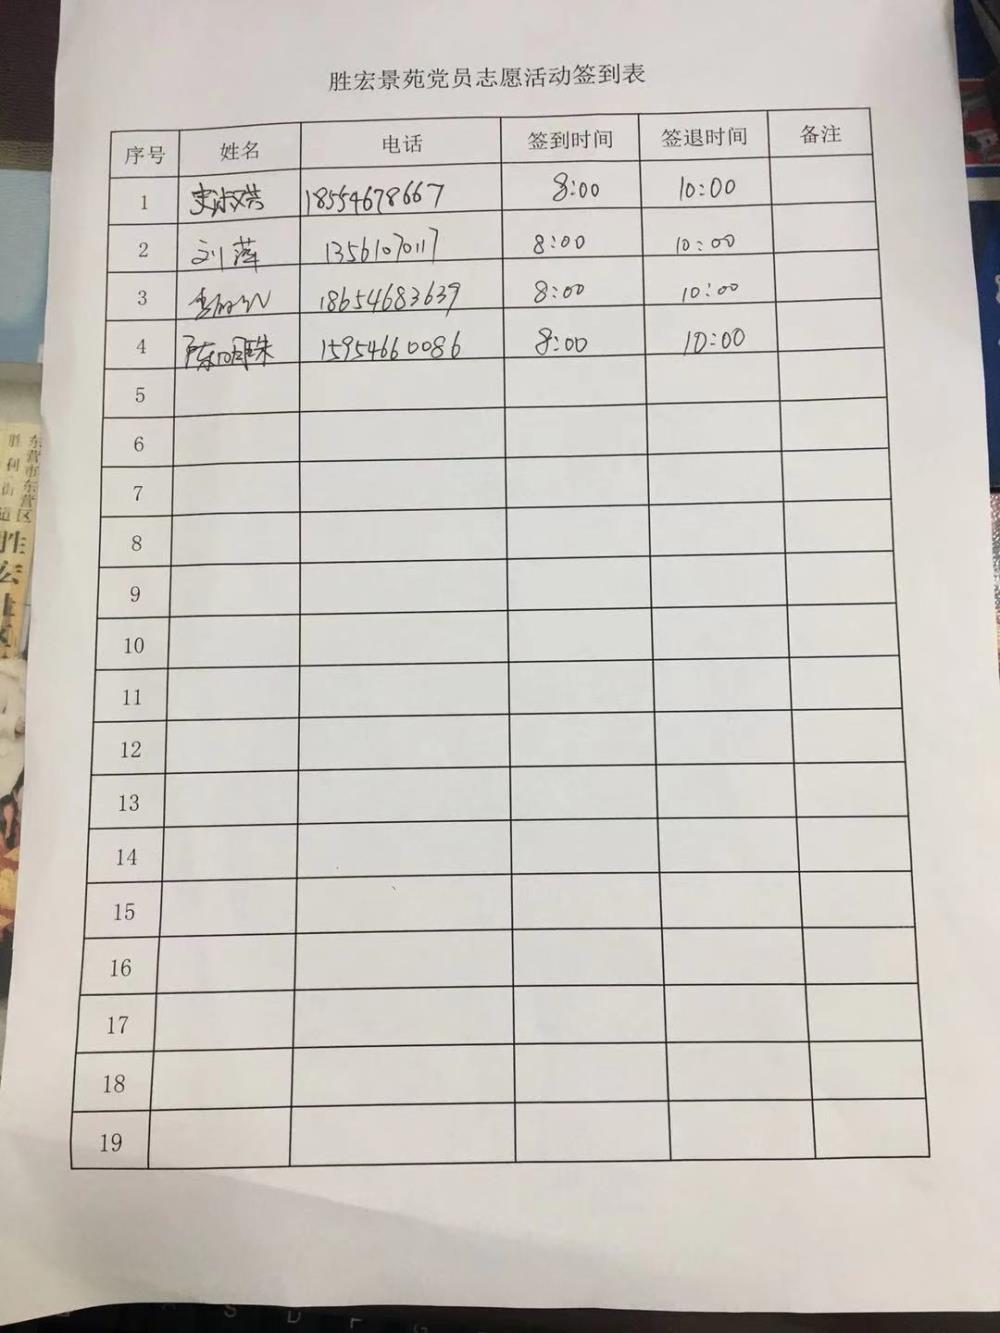 胜宏景苑党员志愿活动签到表
序号 姓名 电话 签到时间 签退时间 备注
1 18554678667 8:00 10:00
2 刘萍 13561070117 8:00 10:00
3 18654683639 8:00 10:00
4 陈明珠 15954660086 8:00 10:00
5
6
7
8
9
10
11
12
13
14
15
16
17
18
19
东营市东营区
胜利街道
胜宏社区
A S D F G